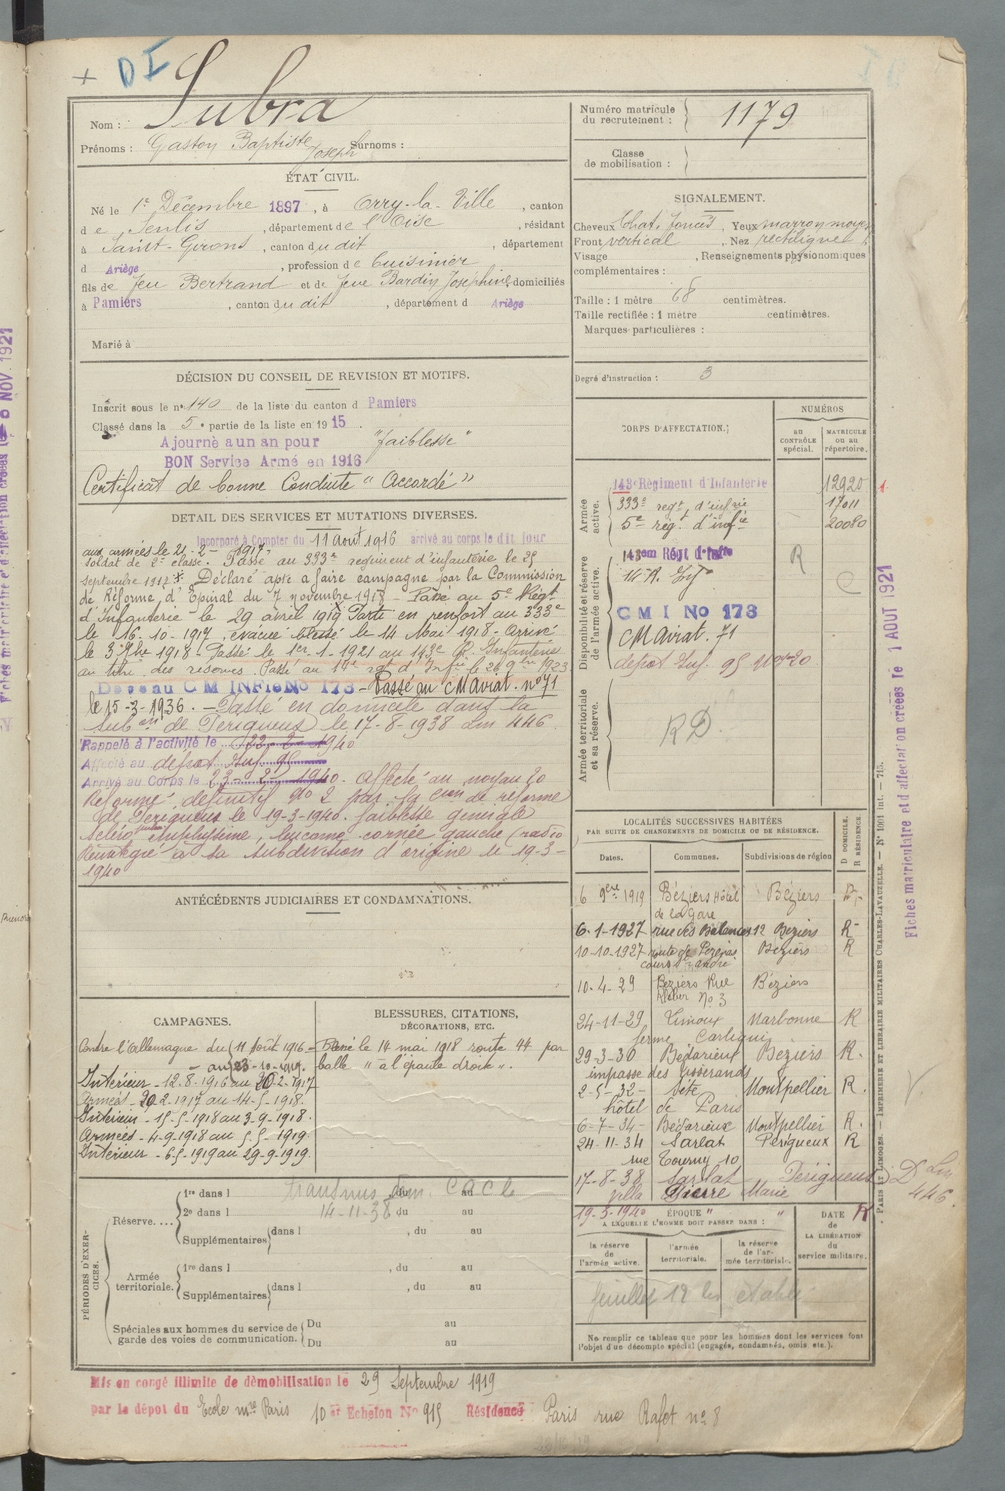 + DI
Subra
Nom :
Prénoms : Gaston Baptiste Joseph Surnoms :
ÉTAT CIVIL.
Né le 1er Décembre 1897, à Orry-la-Ville, canton
de Senlis, département de l'Oise, résidant
à Saint-Girons, canton du dit, département
d Ariège, profession de Cuisinier
fils de feu Bertrand et de feue Bardin Joséphine, domiciliés
à Pamiers, canton du dit, département d Ariège
Marié à
DÉCISION DU CONSEIL DE REVISION ET MOTIFS.
Inscrit sous le no 140 de la liste du canton d Pamiers
Classé dans la 5e partie de la liste en 1915.
Ajourné a un an pour "faiblesse"
BON Service Armé en 1916
Certificat de bonne Conduite "Accordé"
DETAIL DES SERVICES ET MUTATIONS DIVERSES.
Incorporé à Compter du 11 août 1916 arrivé au corps le dit jour
aux armées le 21-2-1917.
soldat de 2e classe. Passé au 333e régiment d'infanterie le 25
septembre 1917 * Déclaré apte à faire campagne par la Commission
de Réforme d'Epinal du 7 novembre 1918 - Passé au 5e Régt
d'Infanterie le 29 avril 1919 Parti en renfort au 333e
le 16-10-1917, évacué blessé le 14 Mai 1918 - Arrivé
le 3 7bre 1918 - Passé le 1er-1-1921 au 143e R. Infanterie
au titre des réserves Passé au 14e régt d'Infie le 9bre 1923
CM INFie No 173 - Passé au CM Aviat. no 71
le 15-3-1936. - Passé en domicile dans la
Subon de Périgueux le 17-8-1938 Lm 446
Rappelé à l'activité le 23-2-1940
Affecté au dépôt Inf 95
Arrivé au Corps le 23-2-1940. Affecté au noyau 20
Réformé définitif no 2 par la Con de réforme
de Périgueux le 19-3-1940. faiblesse générale
emphysème, leucome cornée gauche (radio
Réintégré à sa subdivision d'origine le 19-3-
1940
ANTÉCÉDENTS JUDICIAIRES ET CONDAMNATIONS.
CAMPAGNES.
Contre l'Allemagne du 11 août 1916 -
- au 23-10-1919.
Intérieur - 12-8-1916 au 20-2-1917
Armées - 20-2-1917 au 14-5-1918.
Intérieur - 15-5-1918 au 3-9-1918.
Armées - 4-9-1918 au 5-5-1919
Intérieur - 6-5-1919 au 29-9-1919.
BLESSURES, CITATIONS,
DÉCORATIONS, ETC.
Blessé le 14 mai 1918 route 44 par
balle "à l'épaule droite".
PÉRIODES D'EXERCICES.
Réserve....
1re dans l
du au
2e dans l 14-11-38 du au
Supplémentaires dans l , du au
Armée territoriale.
1re dans l , du au
Supplémentaires dans l , du au
Spéciales aux hommes du service de garde des voies de communication.
Du au
Du au
Mis en congé illimité de démobilisation le 29 Septembre 1919
par le dépôt du Ecole mre Paris 10e Echelon No 915 Résidence Paris rue Rafet no 8
Numéro matricule
du recrutement : 1179
Classe
de mobilisation :
SIGNALEMENT.
Cheveux Chat. foncés, Yeux marron moyen
Front vertical, Nez rectiligne
Visage , Renseignements physionomiques
complémentaires :
Taille : 1 mètre 68 centimètres.
Taille rectifiée : 1 mètre centimètres.
Marques particulières :
Degré d'instruction : 3
CORPS D'AFFECTATION.
NUMÉROS
AU CONTRÔLE spécial.
MATRICULE OU AU répertoire.
Armée active.
143e Régiment d'Infanterie 12920
333e régt d'infrie 17011
5e régt d'infie 20080
Disponibilité et réserve de l'armée active.
143em Régt d'Infie R
14e R. Inf
CMI No 173
CM Aviat. 71
dépôt Inf. 95
Armée territoriale et sa réserve.
RD
LOCALITÉS SUCCESSIVES HABITÉES
PAR SUITE DE CHANGEMENTS DE DOMICILE OU DE RÉSIDENCE.
Dates. Communes. Subdivisions de région D DOMICILE. R RÉSIDENCE.
6 9bre 1919 Béziers Hôtel de la Gare Béziers
6-1-1927 rue des Balances 12 Béziers R
10-10-1927 route de Pezenas Béziers R
10-4-29 Béziers Rue No 3 Béziers
24-11-29 Limoux Narbonne R
ferme
29-3-30 Bédarieux Béziers R.
impasse des Tisserands
2-5-32 - Sète Montpellier R.
hôtel de Paris
6-7-34 - Bédarieux Montpellier R.
24-11-34 Sarlat Périgueux R
rue Tourny 10
17-8-38 Sarlat Périgueux D Lm 446.
villa Pierre Marie
19-3-1940 " " R
ÉPOQUE
A LAQUELLE L'HOMME DOIT PASSER DANS :
la réserve de l'armée active.
l'armée territoriale.
la réserve de l'armée territoriale.
DATE de LA LIBÉRATION du service militaire.
feuillet 12 établi
Ne remplir ce tableau que pour les hommes dont les services font
l'objet d'un décompte spécial (engagés, condamnés, omis, etc.).
PARIS ET LIMOGES. — IMPRIMERIE ET LIBRAIRIE MILITAIRES CHARLES-LAVAUZELLE. — No 1001 int. - 715.
Fiches matriculaire et d'affectation créées le 1 AOUT 1921